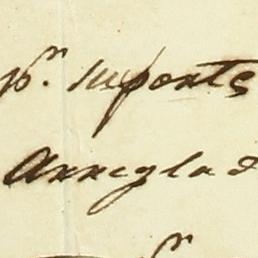 pr. importe
Arreglad